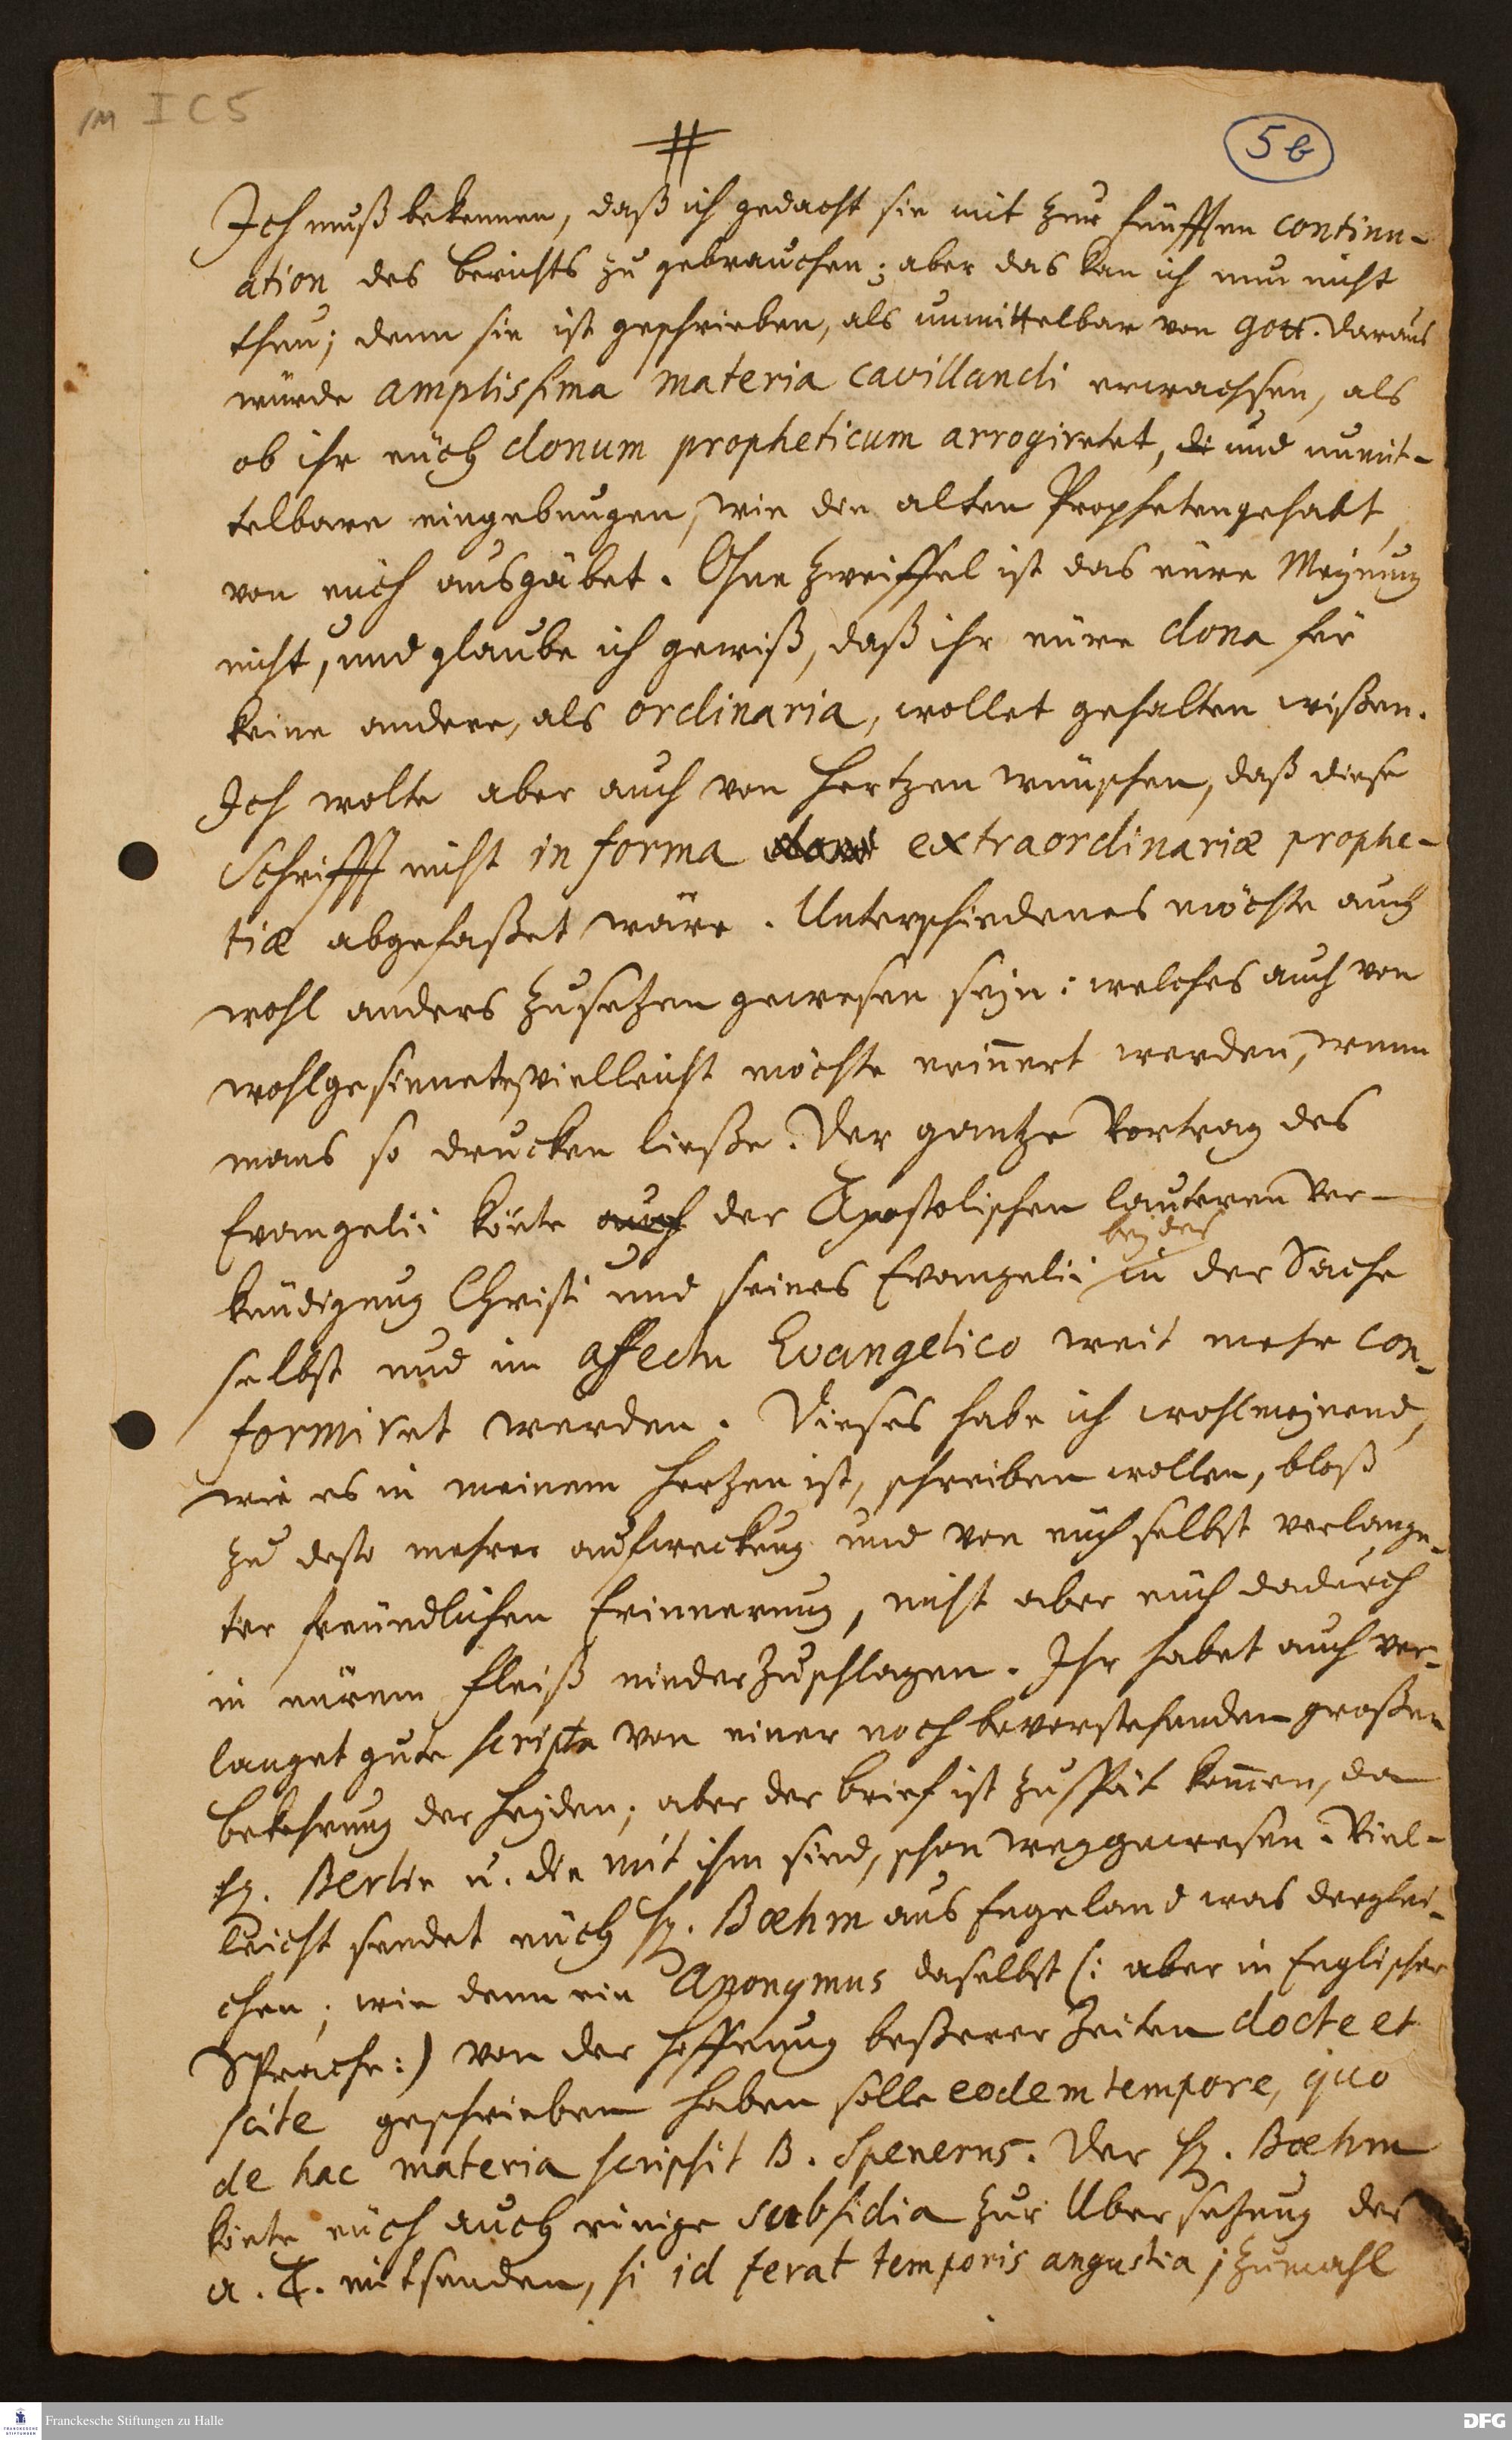 IM I C 5
5b
Ich muß bekennen, daß ich gedacht sie mit zur fünfften continu-
ation des berichts zu gebrauchen; aber das kan ich nun nicht
thun; denn sie ist geschrieben, als unmittelbar von Gott. daraus
würde amplissima materia cavillandi erwachsen, als
ob ihr euch donum propheticum arrogiretet, di und unmit-
telbare eingebungen, wie die alten Propheten gehabt,
von euch ausgäbet. Ohne zweiffel ist das eure Meynung
nicht, und glaube ich gewiß, daß ihr eure dona für
keine andere, als ordinaria, wollet gehalten wißen.
Ich wolte aber auch von Hertzen wünschen, daß diese
Schrifft nicht in forma doni extraordinariæ prophe-
tiæ abgefaßet wäre. Unterschiedenes möchte auch
wohl anders zu setzen gewesen seyn: welches auch von
wohlgesinneten vielleicht möchte erinnert werden, wenn
mans so drucken ließe. Der gantze Vortrag des
Evangelii könte auch der Apostolischen lauteren Ver-
beydes
kündigung Christi und seines Evangelii in der Sache
selbst und im affectu Evangelico weit mehr con-
formiret werden. Dieses habe ich wohlmeynend,
wie es in meinem Hertzen ist, schreiben wollen, bloß
zu desto mehrer aufweckung und von euch selbst verlange-
ter freundlichen Erinnerung, nicht aber euch dadurch
in eurem fleiß niederzuschlagen. Ihr habet auch ver-
langet gute scripta von einer noch bevorstehenden großen
bekehrung der Heyden; aber der brief ist zu spät kommen, da
H. Berlin u. die mit ihm sind, schon weggewesen. Viel-
leicht sendet euch H. Bœhm aus Engeland was derglei-
chen; wie denn ein Anonymus daselbst (: aber in Englischer
Sprache:) von der Hoffnung beßerer Zeiten docte et
scite geschrieben haben solle eodem tempore, quo
de hac materia scripsit B. Spenerus. Der H. Bœhm
könte euch auch einige subsidia zur Ubersetzung des
A. T. mitsenden, si id ferat temporis angustia; zumahl
Franckesche Stiftungen zu Halle
DFG